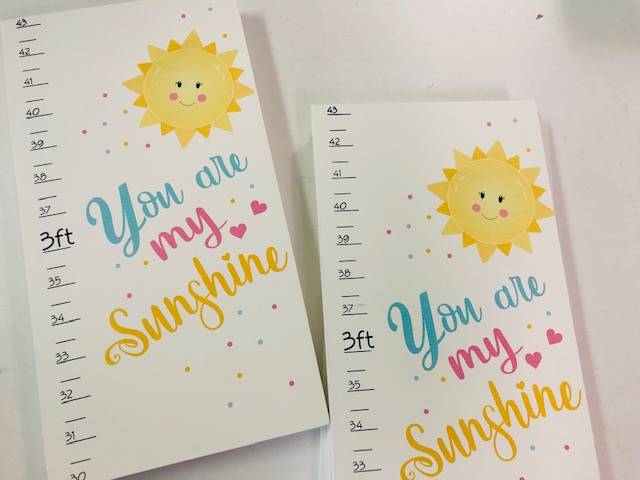 43
42
41
40
39
38
37
3ft
35
34
33
32
31
30
You are
my
Sunshine
43
42
41
40
39
38
37
3ft
35
34
33
You are
my
Sunshine